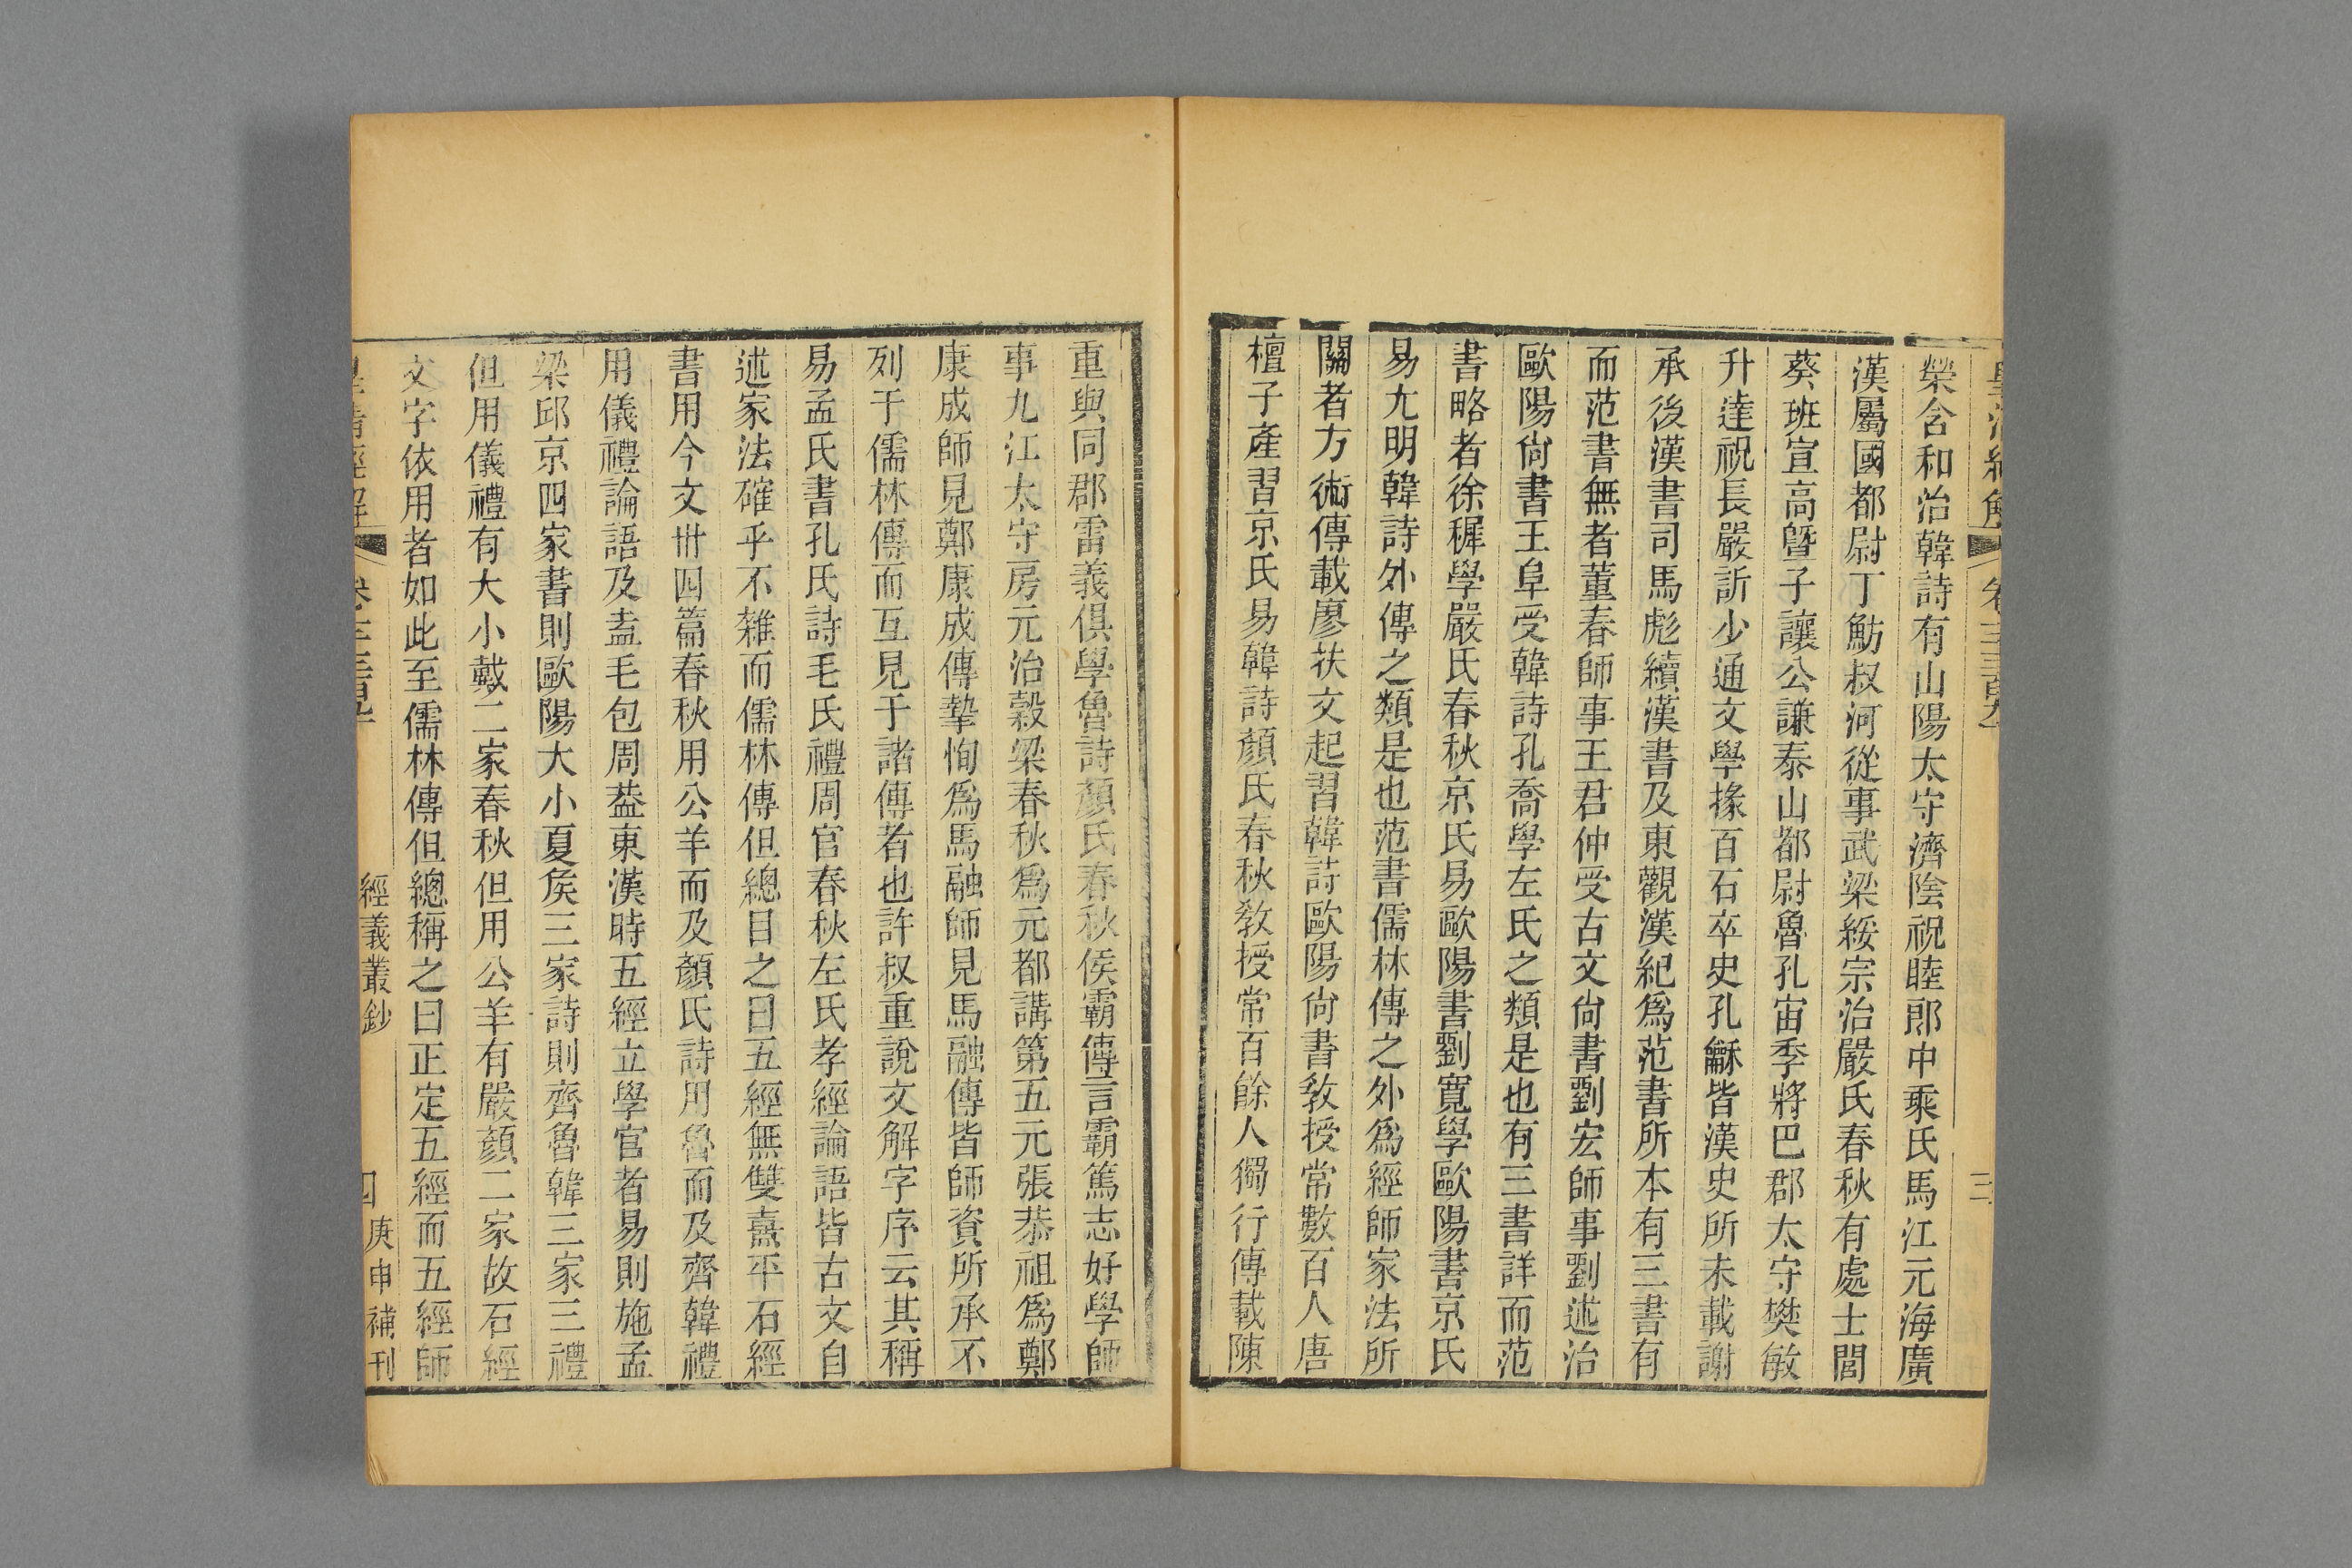 榮含和治韓詩有山陽太守濟陰祝睦郎中乘氏馬江元海廣
漢屬國都尉丁魴叔河從事武梁綏宗治嚴氏春秋有處士閭
葵班宣高曁子讓公謙泰山都尉魯孔宙季將巴郡太守樊敏
升達祝長嚴訢少通文學掾百石卒史孔龢皆漢史所未載謝
承後漢書司馬彪續漢書及東觀漢紀爲范書所本有三書有
而范書無者董春師事王君仲受古文尙書劉宏師事劉述治
歐陽尙書王阜受韓詩孔喬學左氏之類是也有三書詳而范
書略者徐穉學嚴氏春秋京氏易歐陽書劉寬學歐陽書京氏
易尤明韓詩外傳之類是也范書儒林傳之外爲經師家法所
關者方術傳載廖扶文起習韓詩歐陽尙書敎授常數百人唐
檀子產習京氏易韓詩顏氏春秋敎授常百餘人獨行傳載陳
重與同郡雷義俱學魯詩顏氏春秋侯霸傳言霸篤志好學師
事九江太守房元治穀梁春秋爲元都講第五元張恭祖爲鄭
康成師見鄭康成傳摯恂爲馬融師見馬融傳皆師資所承不
列于儒林傳而互見于諸傳者也許叔重說文解字序云其稱
易孟氏書孔氏詩毛氏禮周官春秋左氏孝經論語皆古文自
述家法確乎不雜而儒林傳但總目之曰五經無雙熹平石經
書用今文卅四篇春秋用公羊而及顏氏詩用魯而及齊韓禮
用儀禮論語及盍毛包周葢東漢時五經立學官者易則施孟
梁邱京四家書則歐陽大小夏矦三家詩則齊魯韓三家三禮
但用儀禮有大小戴二家春秋但用公羊有嚴顏二家故石經
文字依用者如此至儒林傳但總稱之曰正定五經而五經師
經義叢鈔
四
庚申補刊